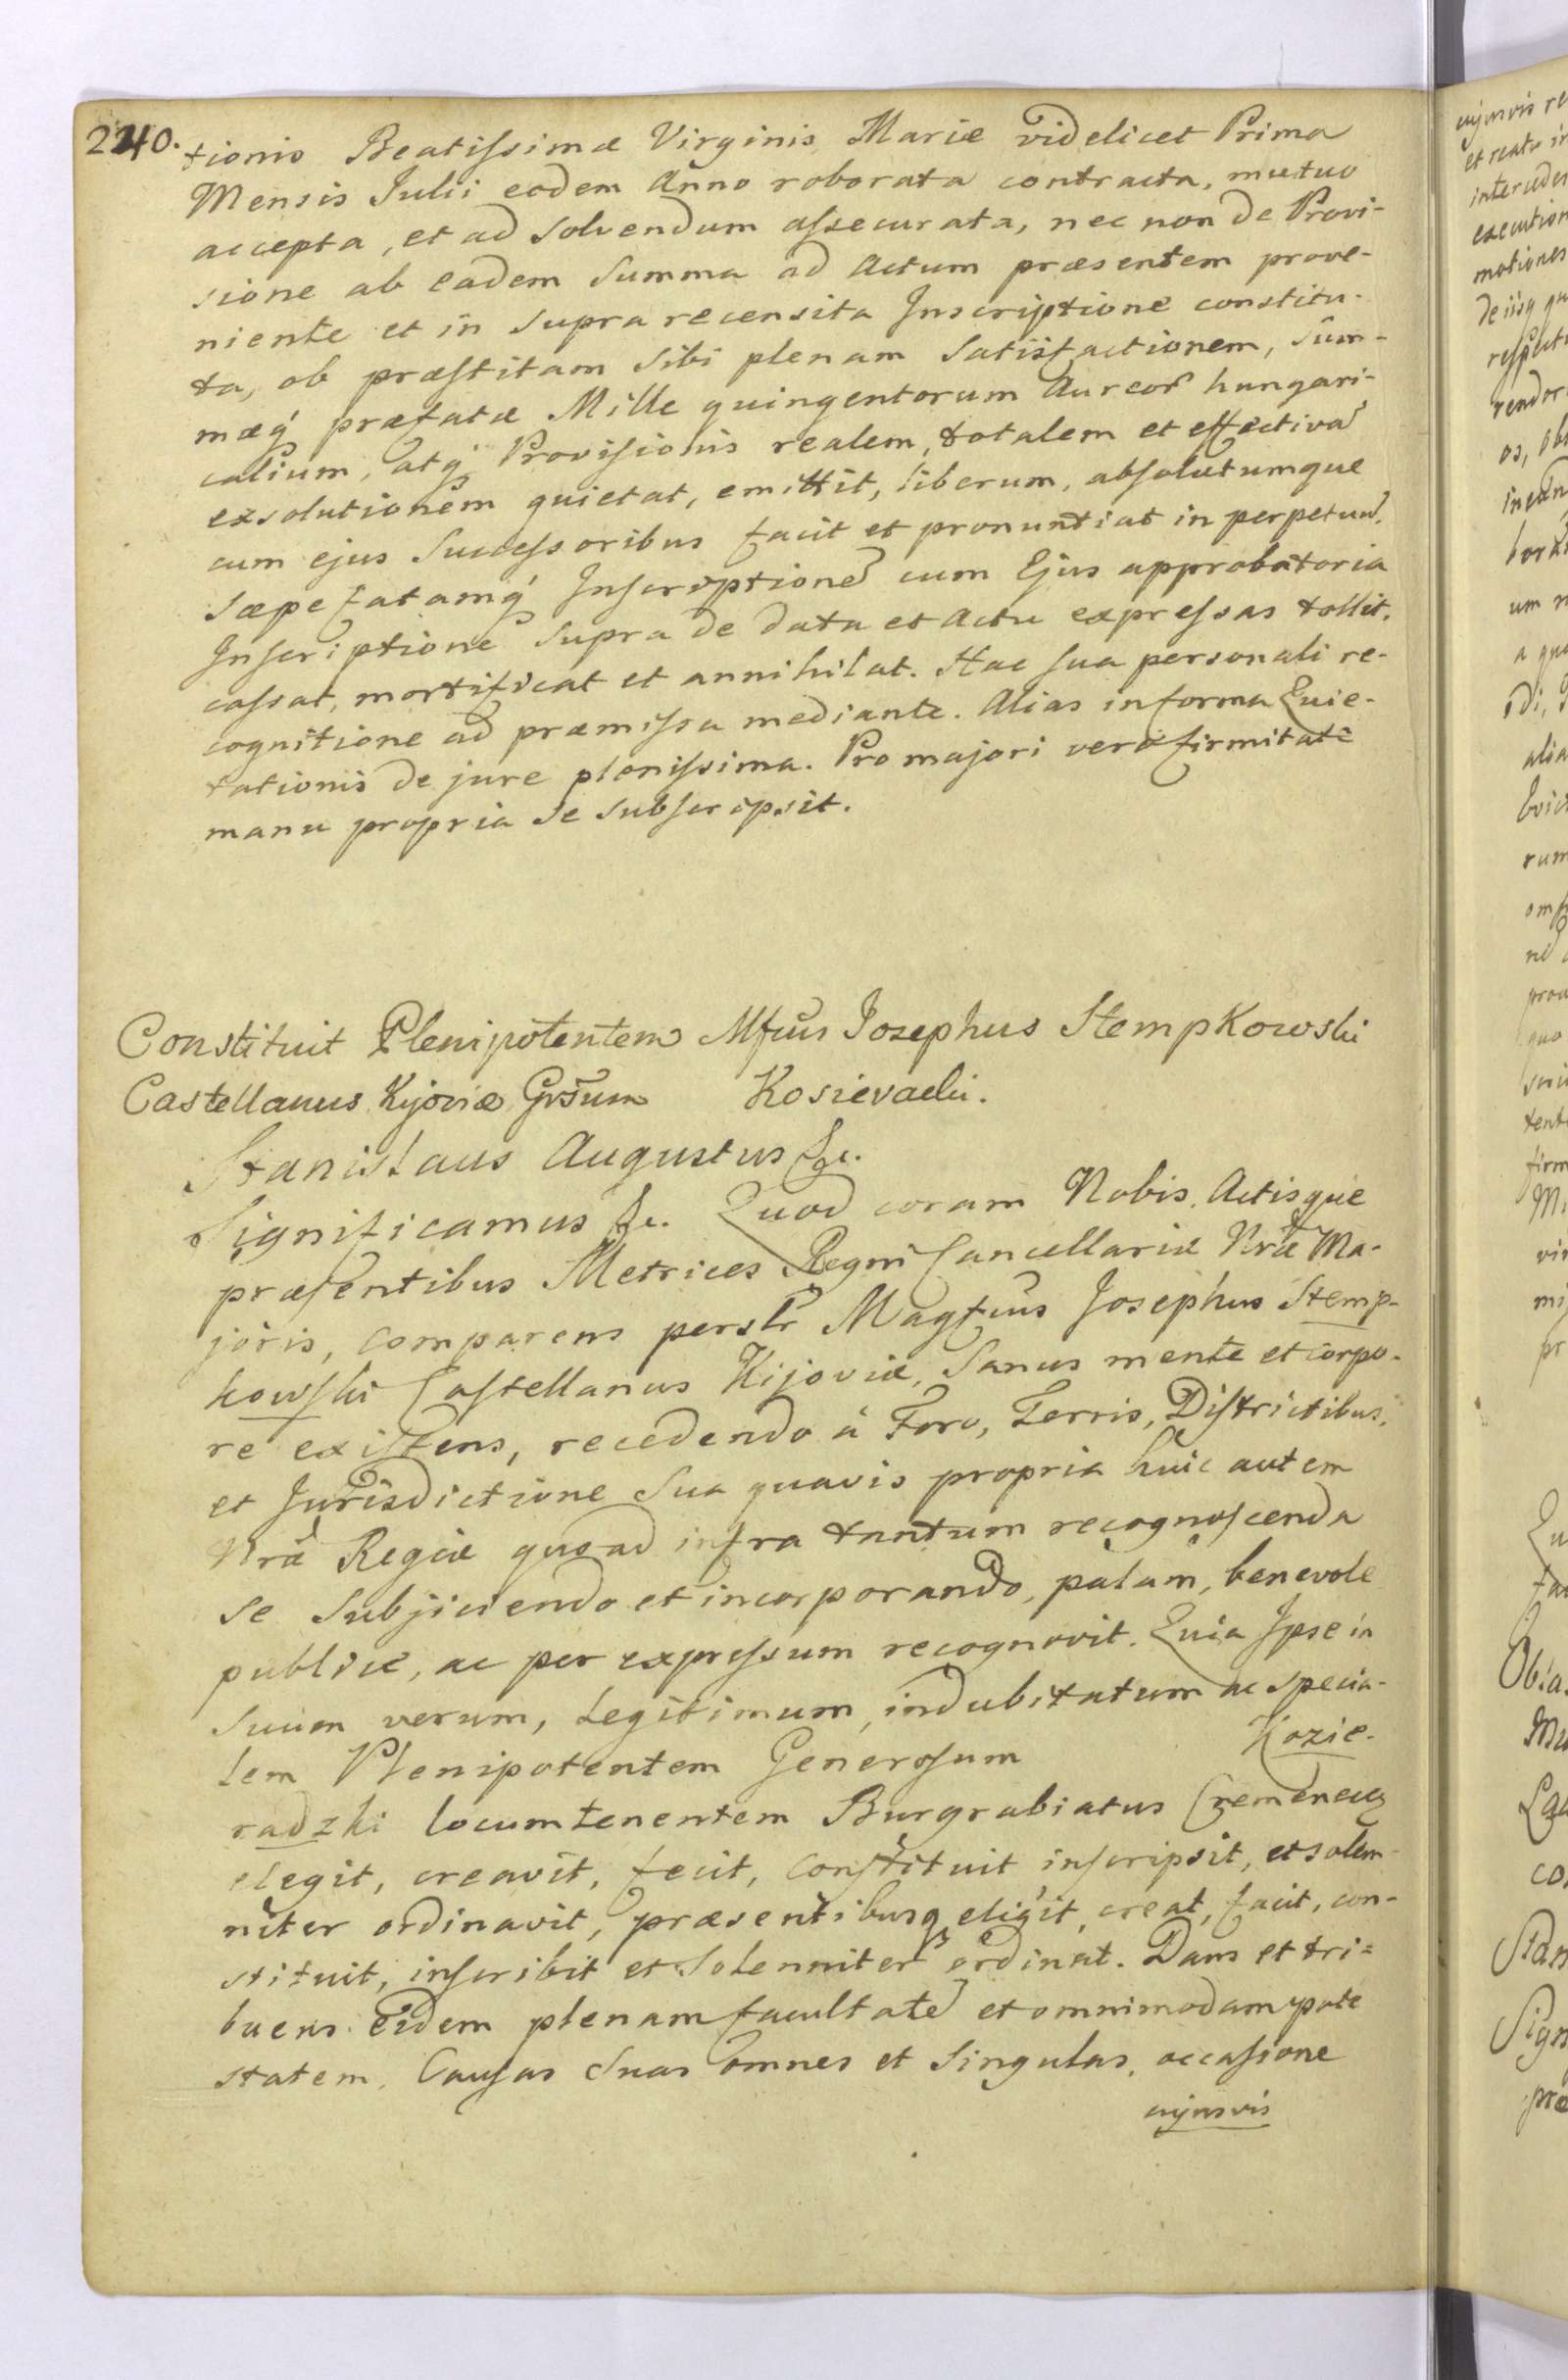 240.
tionis Beatissimæ Virginis Mariæ videlicet Prima
Mensis Julii eodem Anno roborata contracta, mutuo
accepta, et ad Solvendum assecurata, nec non de Provi-
sione ab eadem Summa ad Actum præsentem prove-
niente et in Supra recensita Inscriptione constitu-
ta, ob præstitam Sibi plenam Satisfactionem, Sum-
mæq́ præfatæ Mille quingentorum Aureor̃ hungari-
calium, atq́ Provisionis realem, totalem et effectivã
exsolutionem quietat, emittit, liberum, absolutumque
cum ejus Successoribus facit et pronuntiat in perpetuũ.
Sæpefatamq́ Inscriptionẽ cum Ejus approbatoria
Inscriptione Supra de data et Actu expressas tollit,
cassat, mortificat et annihilat. Hac sua personali re-
cognitione ad præmissa mediante. Alias in forma Quie-
tationis de jure plenissima. Pro majori vero firmitate
manu propria se subscripsit.
Constituit Plenipotentem Mfcus Josephus Stempkowski
Castellanus Kijoviæ Grsum Kosieradzki.
Stanislaus Augustus &c.
Significamus &c. Quod coram Nobis, Actisque
præsentibus Metrices Regni Cancellariæ Nræ Ma-
joris, comparens persłr Magfcus Josephus Stemp-
kowski Castellanus Kijoviæ, Sanus mente et corpo-
re existens, recedendo à Foro, Terris, Districtibus,
et Jurisdictione Sua quavis propria huic autem
Nræ Regiæ quoad infra tantum recognoscenda
se Subjiciendo et incorporando, palam, benevole
publice, ac per expressum recognovit. Quia Ipse in
Suum verum, Legitimum, indubitatum ac specia-
lem Plenipotentem Generosum Kozie-
radzki locumtenentem Burgrabiatus Cremenecz
elegit, creavit, fecit, constituit inscripsit, et solen-
niter ordinavit, præsentibusq eligit, creat, facit, con-
stituit, inscribit et Solenniter ordinat. Dans et tri-
buens Eidem plenam facultatẽ et omnimodam pote
statem, Causas Suas omnes et Singulas, occasione
cujusvis